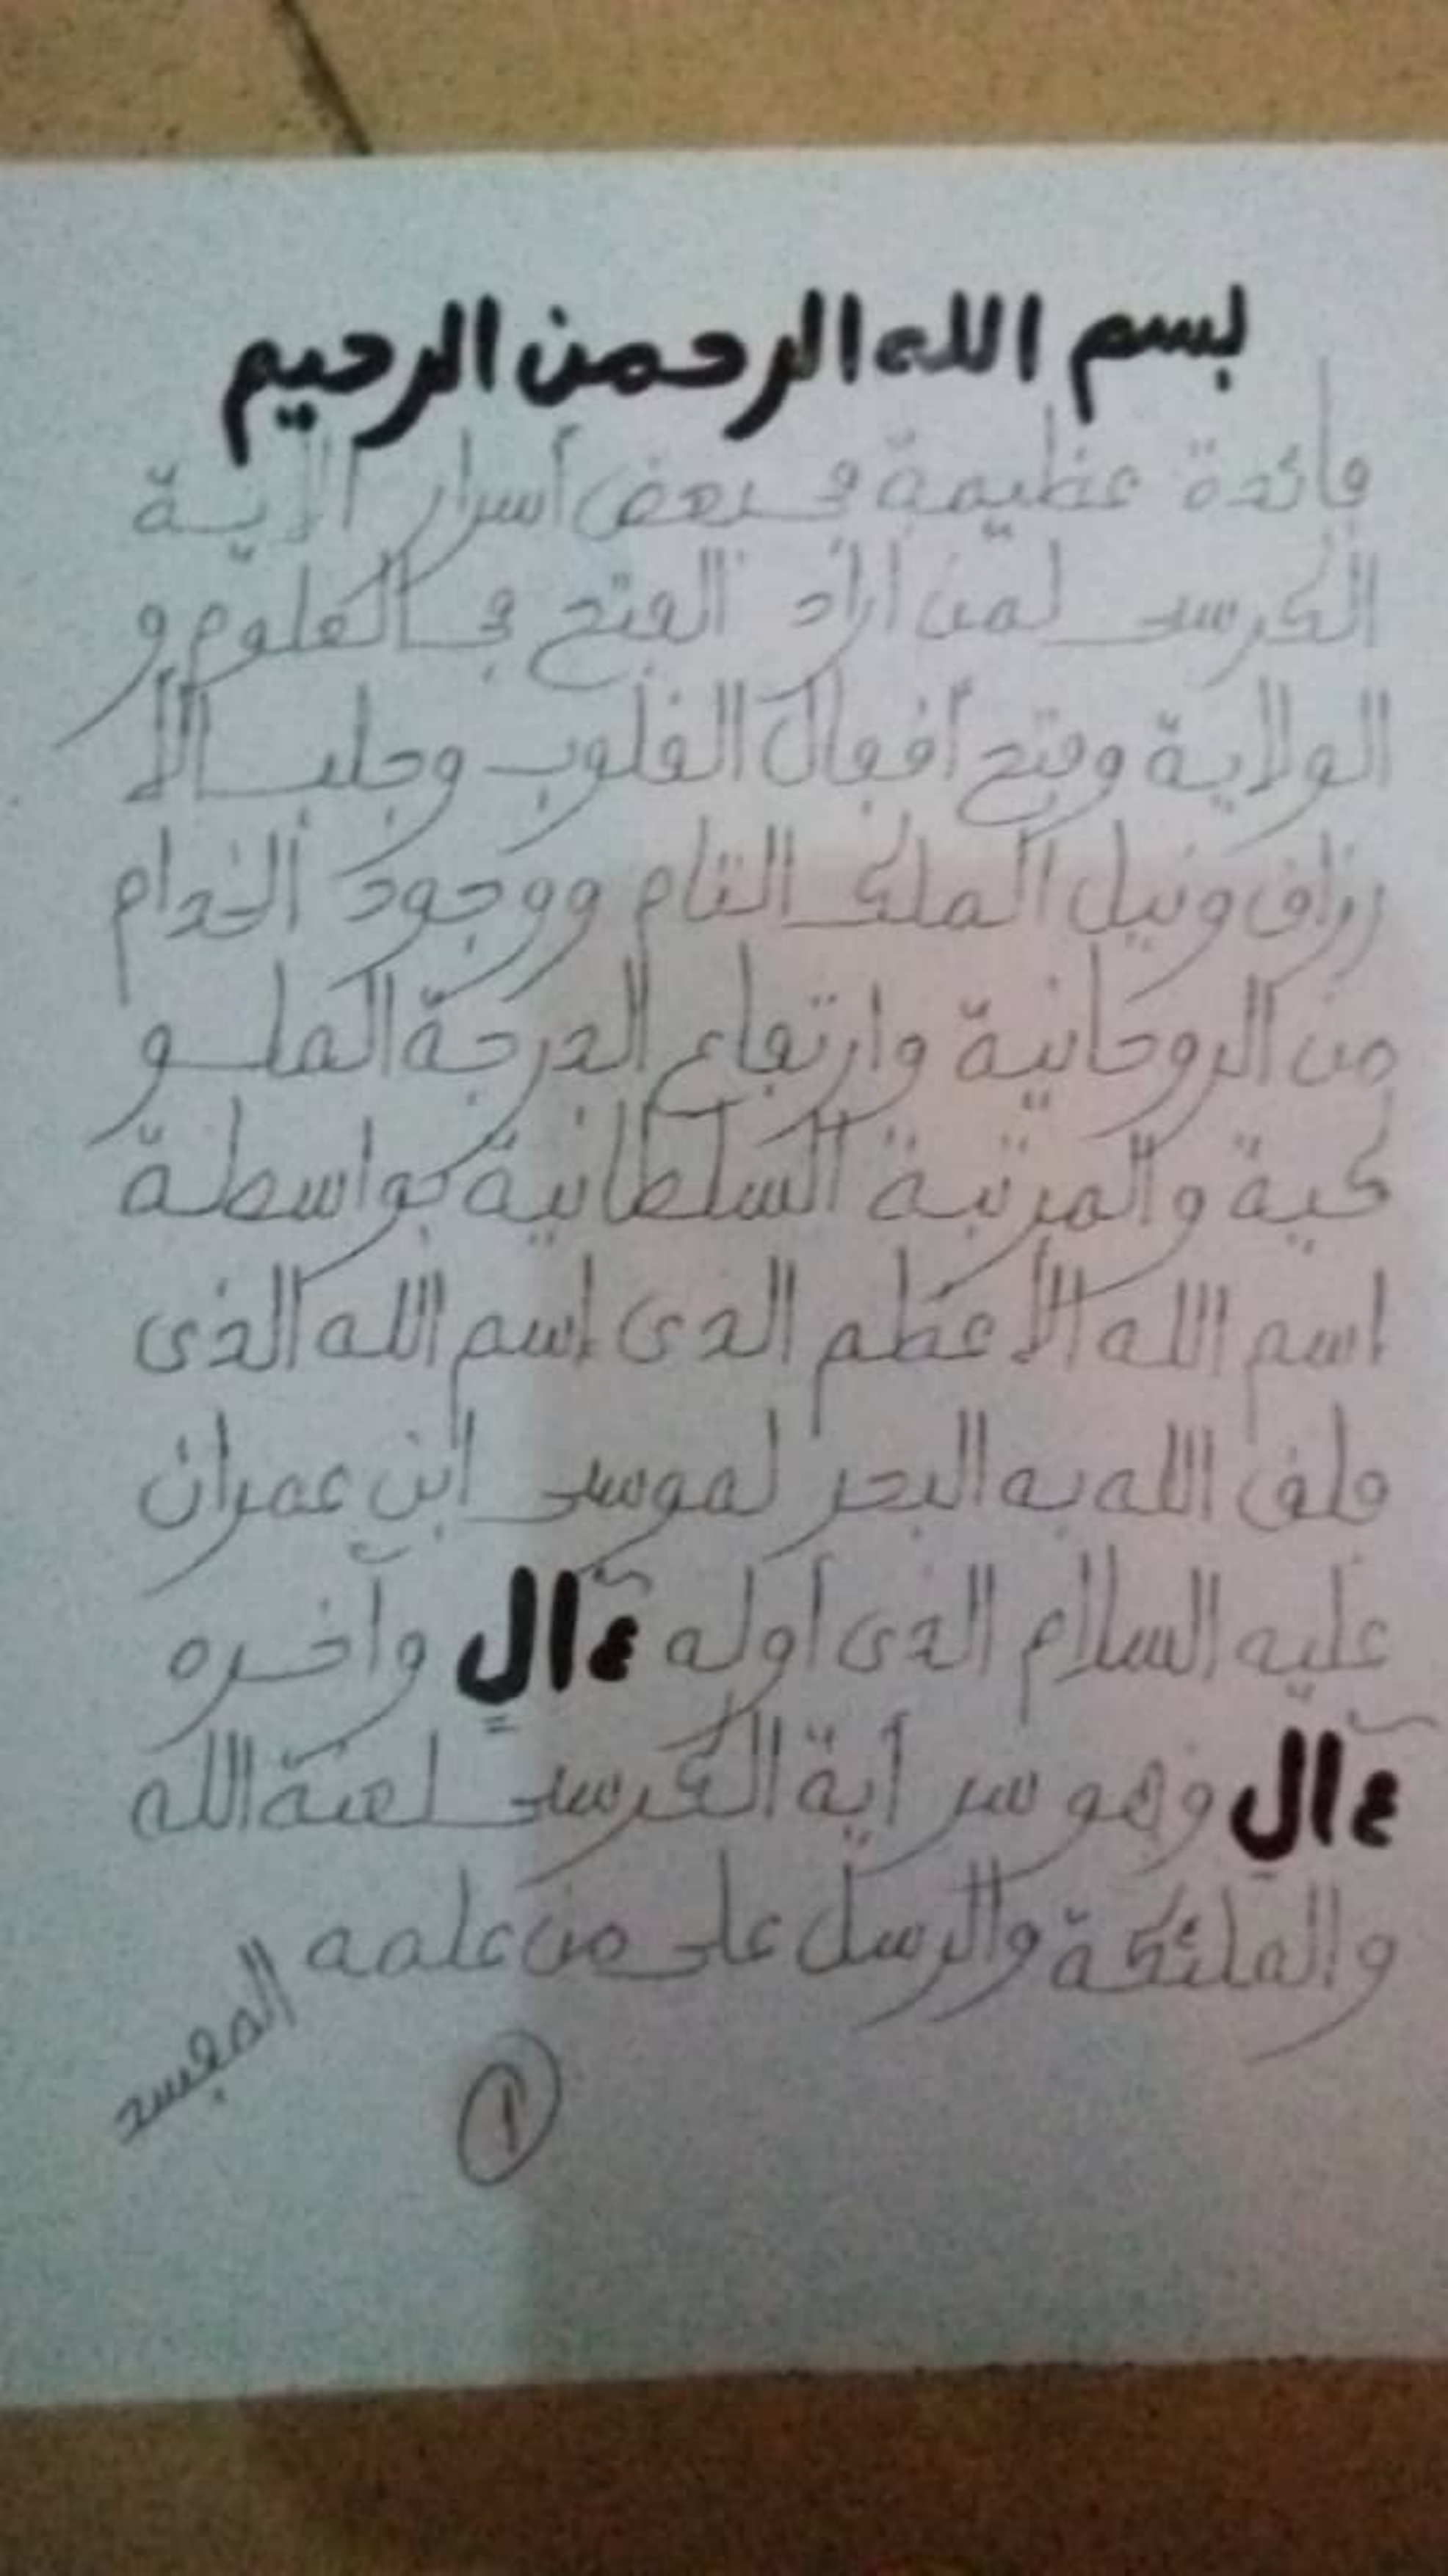 بسم الله الرحمن الرحيم
فائدة عظيمة في بعض أسرار الآية
الكرسي لمن أراد الفتح في العلوم و
الولاية وفتح أقفال القلوب وجلب الأ
رزاق ونيل الملك التام ووجود الخدام
من الروحانية وارتفاع الدرجة الملو
كية والمرتبة السلطانية بواسطة
اسم الله الأعظم الذي اسم الله الذي
فلق الله به البحر لموسى ابن عمران
عليه السلام الذي أوله ءال وآخره
ءال وهو سر آية الكرسي لعنة الله
والملئكة والرسل على من علمه
المفسد
١